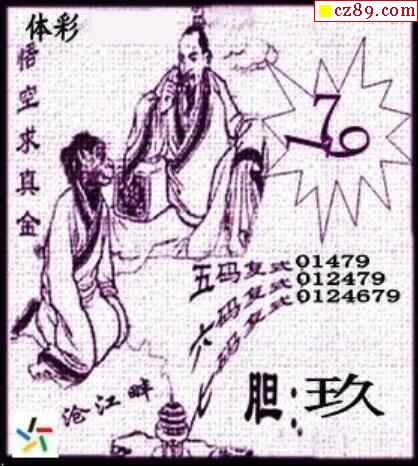 cz89.com
体彩
悟空求真金
179
五码复式01479
六码复式012479
七码复式0124679
胆:玖
沧江畔